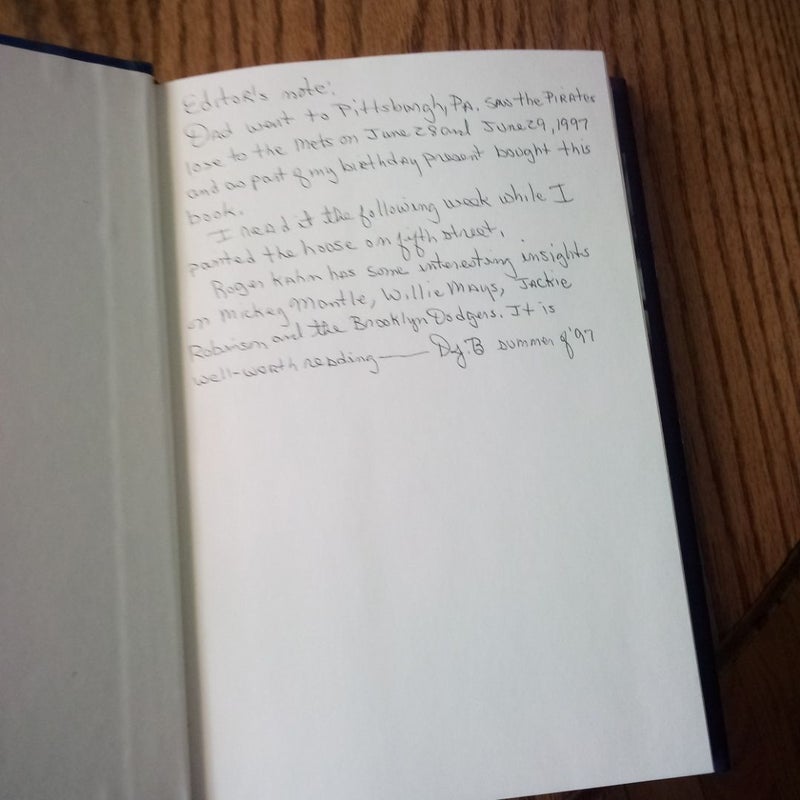 Editor's note:
Dad went to Pittsburgh, PA. saw the Pirates
lose to the Mets on June 28 and June 29, 1997
and as part of my birthday present bought this
book.
I read it the following week while I
painted the house on fifth street.
Roger Kahn has some interesting insights
on Mickey Mantle, Willie Mays, Jackie
Robinson and the Brooklyn Dodgers. It is
well-worth reading — summer of '97